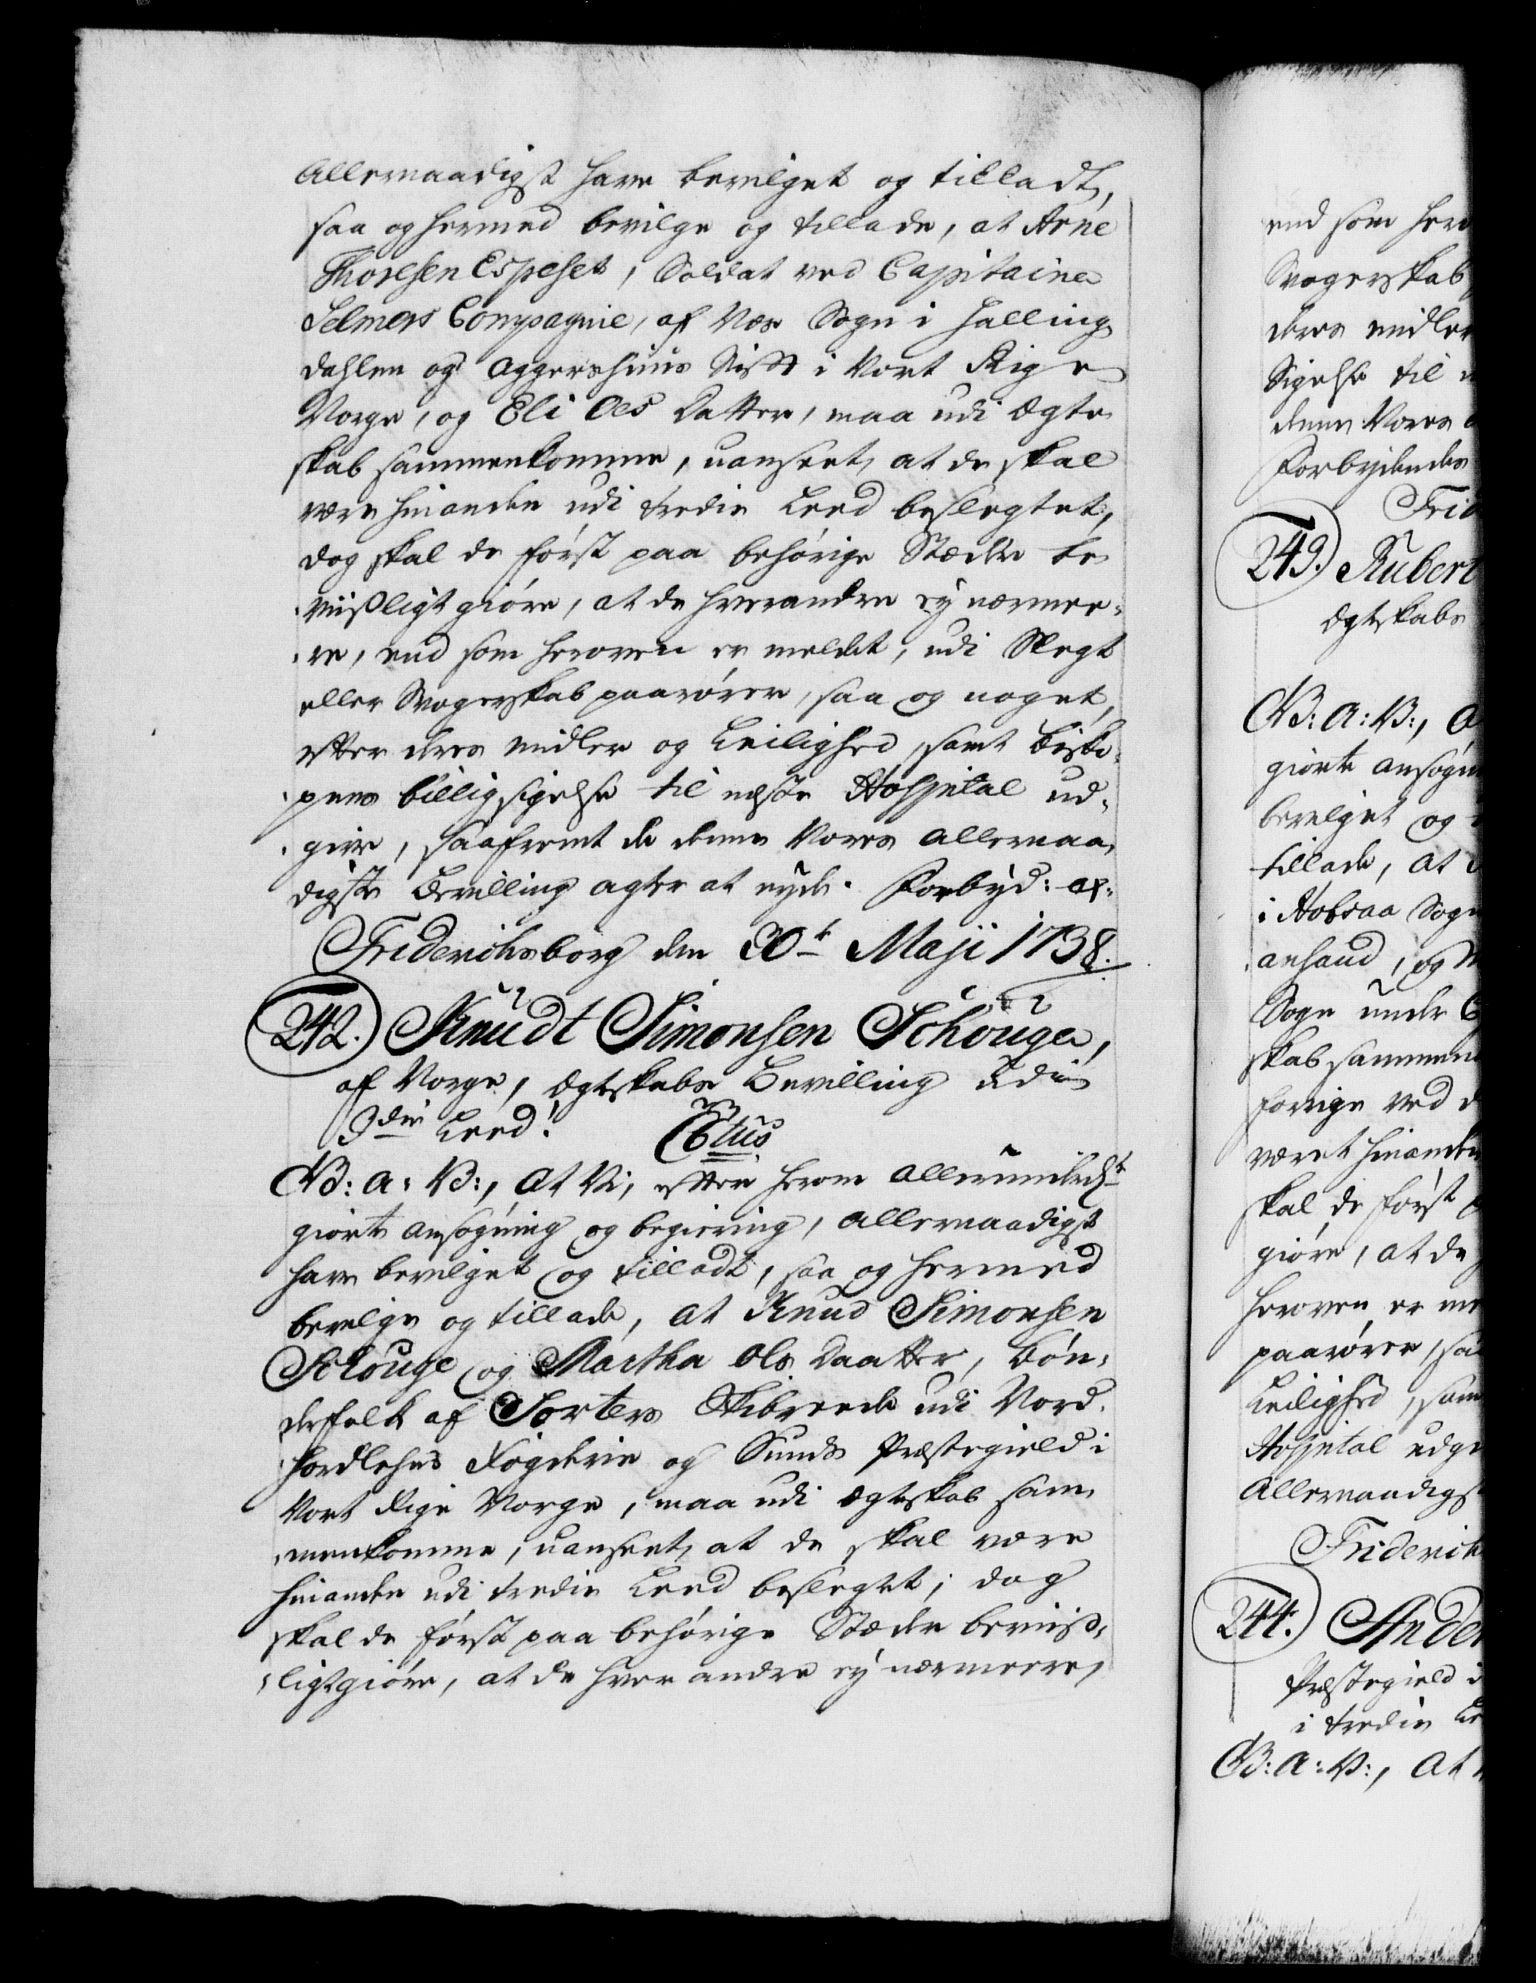 Allernaadigst have bevilget og tilladt,
saa og hermed bevilge og tillade, at Arne
Thoresen Espeset, Soldat ved Capitaine
Selmers Compagnie, af Næs Sogn i Halling
dahlen og Aggershuus Stift i Vort Rige
Norge, og Eli Oes Datter, maa udi Ægte
skab sammenkomme, uanseet, at de skal
være hinanden udi tredie Leed beslegtet,
dog skal de først paa behørige Stæder be
viisligt giøre, at de hverandre ey nærmee-
re, end som heroven er meldet, udi Slegt
eller Svogerskab paarører, saa og noget,
efter deres midler og Leilighed, samt Bisko-
pens billig sigelse til neste Hospital ud-
give, saafremt de denne Vores allernaa
digste Bevilling agter at nyde. Forbyd: etc:
Friderichsborg den 30te Maji 1738.
242. Knudt Simonsen Schouge,
af Norge, Ægteskabs Bevilling Udi
3die Leed.
C6tus
V: A: V:, At Vi, efter herom allerunderdst
giorte ansøgning og begiering, allernaadigst
have bevilget og tilladt, saa og hermed
bevilge og tillade, at Knud Simonsen
Schouge og Martha Ols Daatter, Bøn-
derfolk af Sorters Skibreede udi Nord-
hordlehns Fogderie og Sunds Præstegield i
Vort Rige Norge, maa udi Ægteskab sam
menkomme, uanseet, at de skal være
hinanden udi tredie Leed beslegtet; dog
skal de først paa behørige Stæder beviis-
ligt giøre, at de hver andre ey nærmeere,
end som hero
Svogerskab
deres midler
Sigelse til
denne Vores
Forbydendes
Frid
243. Rubert
Ægteskabs
V: A: V:, A
giorte ansøgn
bevilget og
tillade, at
i Aobraa Sogn
anhaud, og
Sogn under
skab sammen
forrige ved
været hinanden
skal de først
giøre, at de
heroven er me
paarører, saa
Leilighed, sam
Hospital udgi
Allernaadigst
Friderich
244. Ander
Præstegield i
i tredie Le
V: A: V:, At